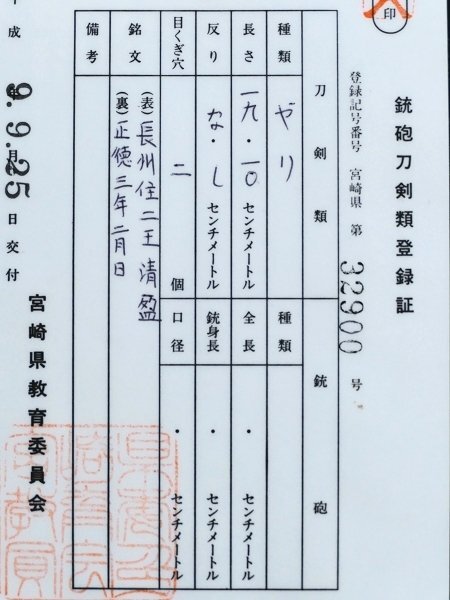 銃砲刀剣類登録証
印
登録記号番号 宮崎県 第 32900 号
刀剣類
銃砲
種類 やり
種類
長さ 一九・一〇 センチメートル
全長 ・ センチメートル
反り な・し センチメートル
銃身長 ・ センチメートル
目くぎ穴 二 個
口径 ・ センチメートル
銘文 (表)長州住二王清盈
(裏)正徳三年二月日
備考
成 9.9.25 月 日交付
宮崎県教育委員会